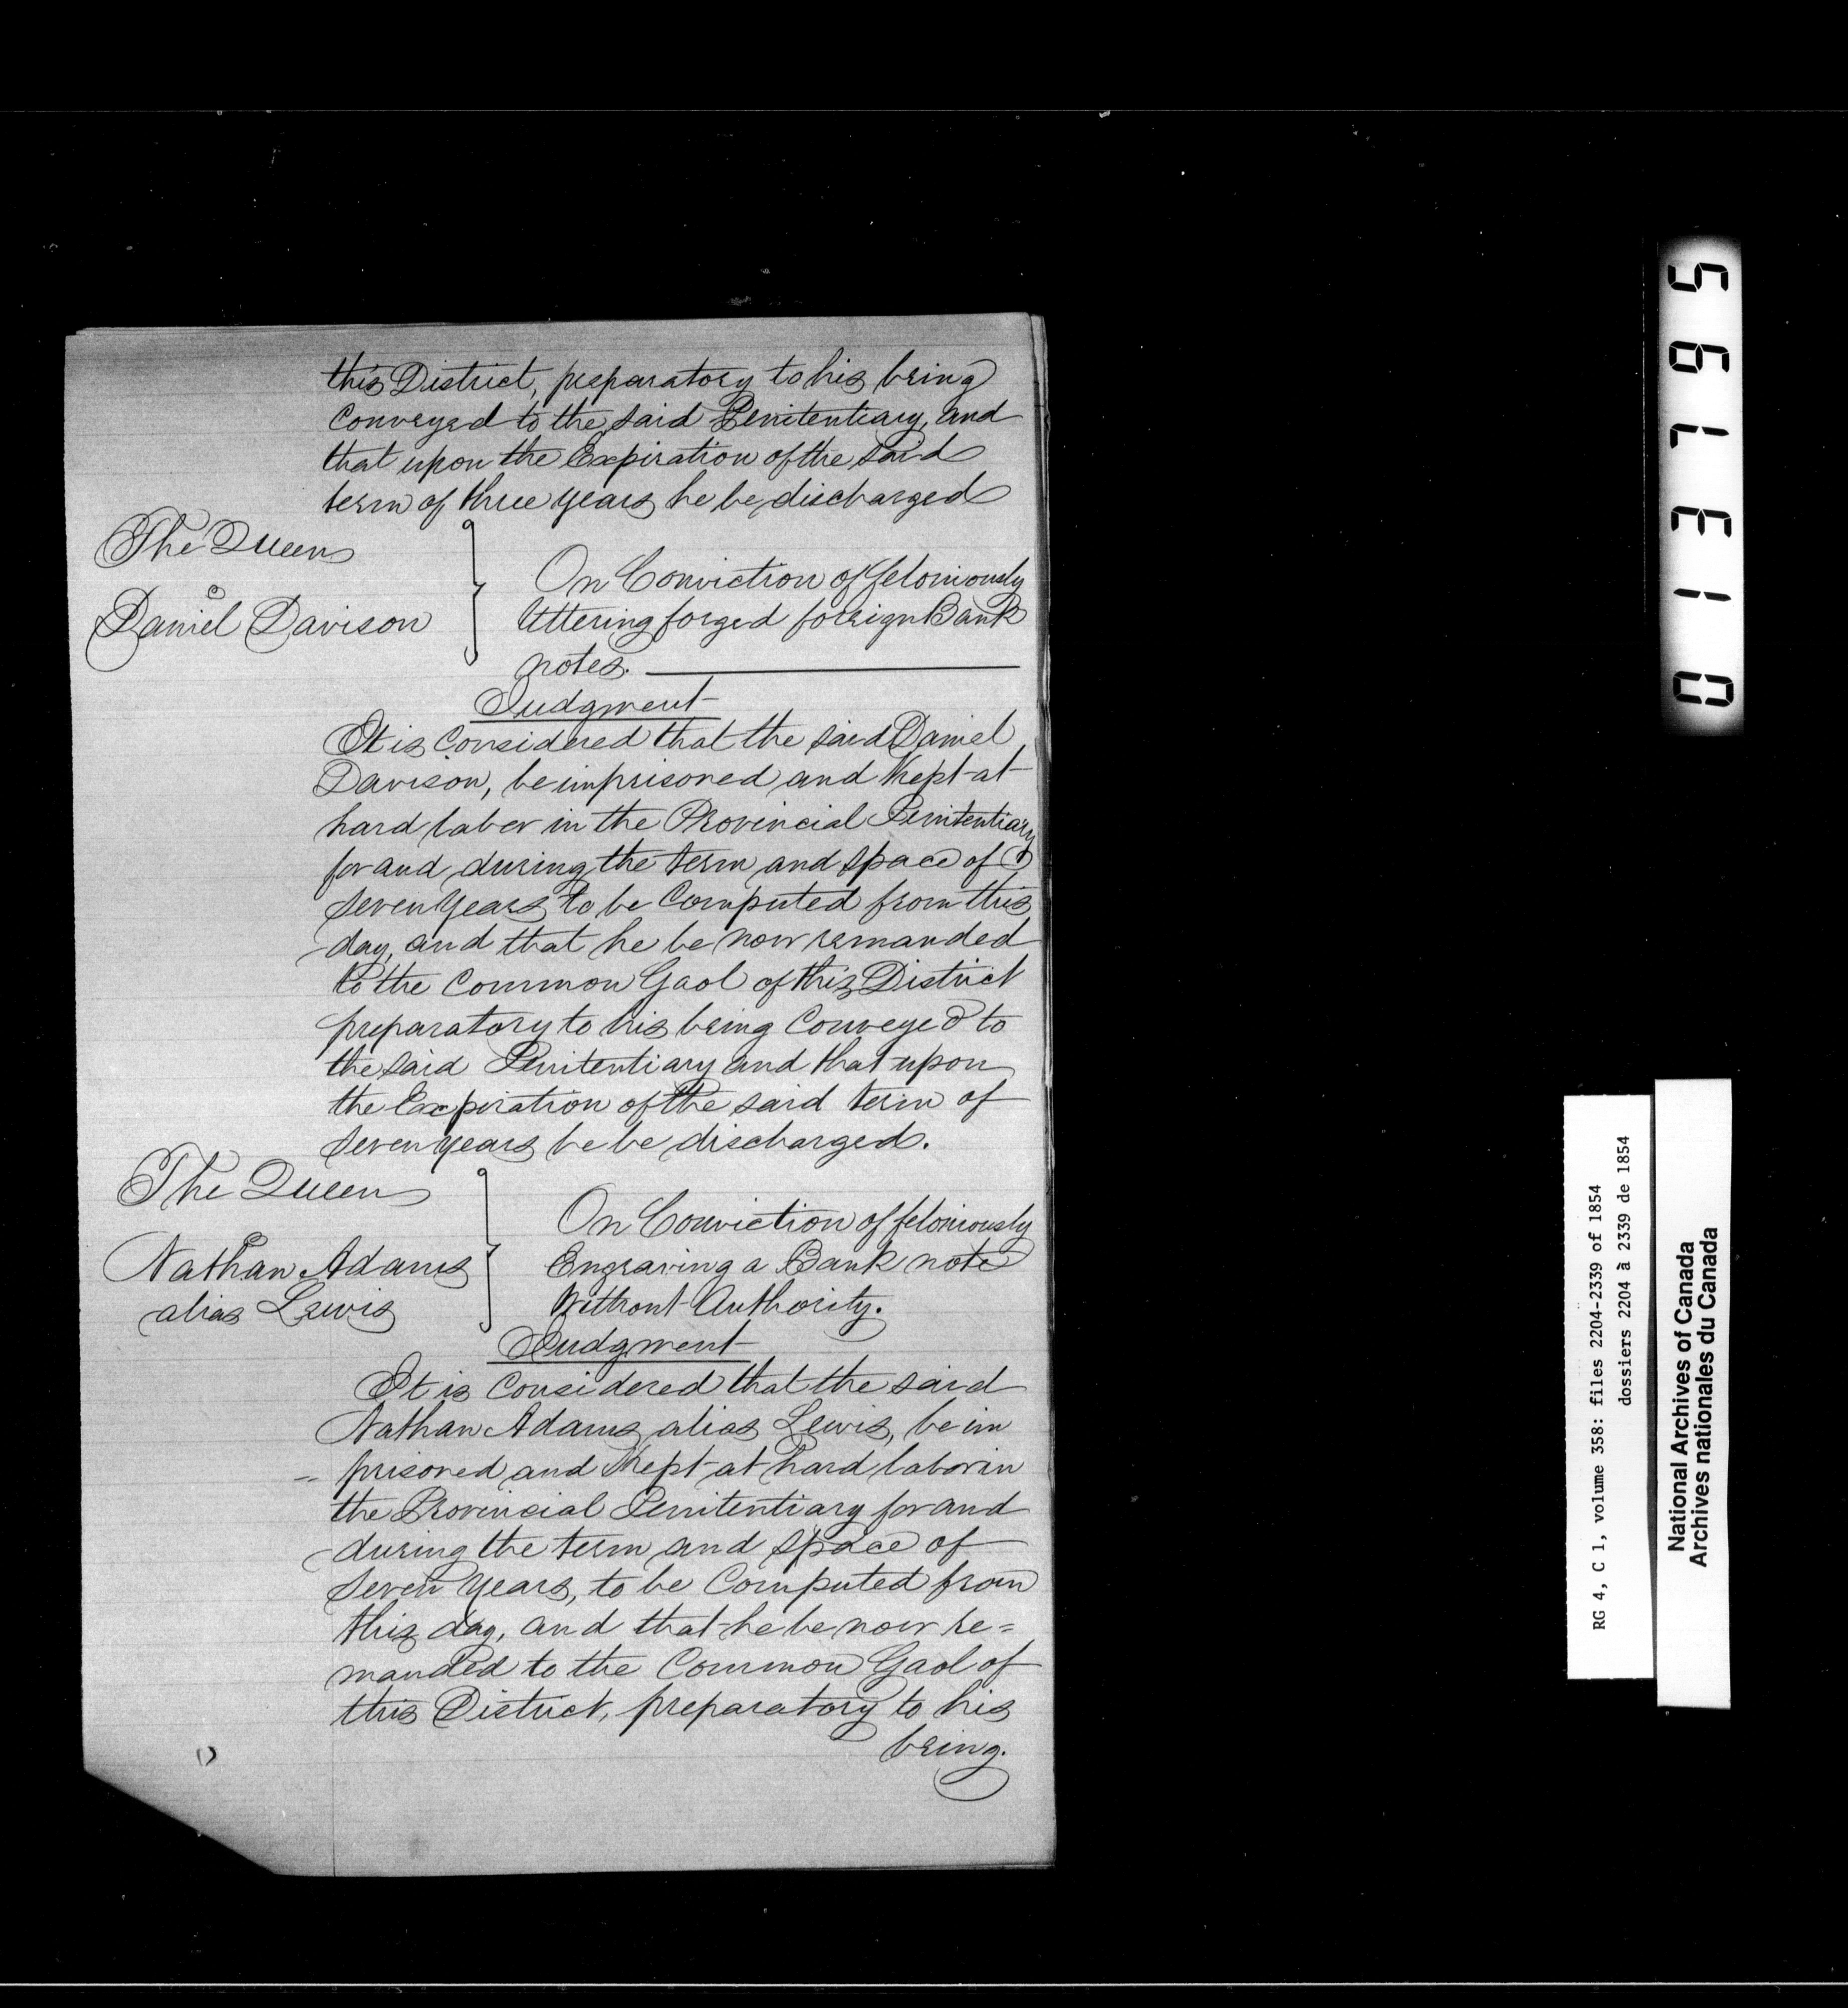 this District, preparatory to his being
Conveyed to the said Penitentiary, and
that upon the Expiration of the said
term of three years he be discharged
The Queen
c
Daniel Davison
On Conviction of feloniously
Uttering forged foreign Bank
notes.
Judgment
It is Considered that the said Daniel
Davison, be imprisoned and Kept at
hard labor in the Provincial Penitentiary
for and during the term and space of
seven years to be Computed from this
day, and that he be now remanded
to the Common Gaol of this District
preparatory to his being Conveyed to
the said Penitentiary and that upon
the Expiration of the said term of
seven years he be discharged.
The Queen
c
Nathan Adams
alias Lewis
On Conviction of feloniously
Engraving a Bank note
Without Authority.
Judgment
It is Considered that the said
Nathan Adams alias Lewis, be im
- prisoned and Kept at hard labor in
the Provincial Penitentiary for and
during the term and space of
seven years, to be Computed from
this day, and that he be now re=
manded to the Common Gaol of
this District, preparatory to his
being.
013795
RG 4, C 1, volume 358: files 2204-2339 of 1854
dossiers 2204 à 2339 de 1854
National Archives of Canada
Archives nationales du Canada